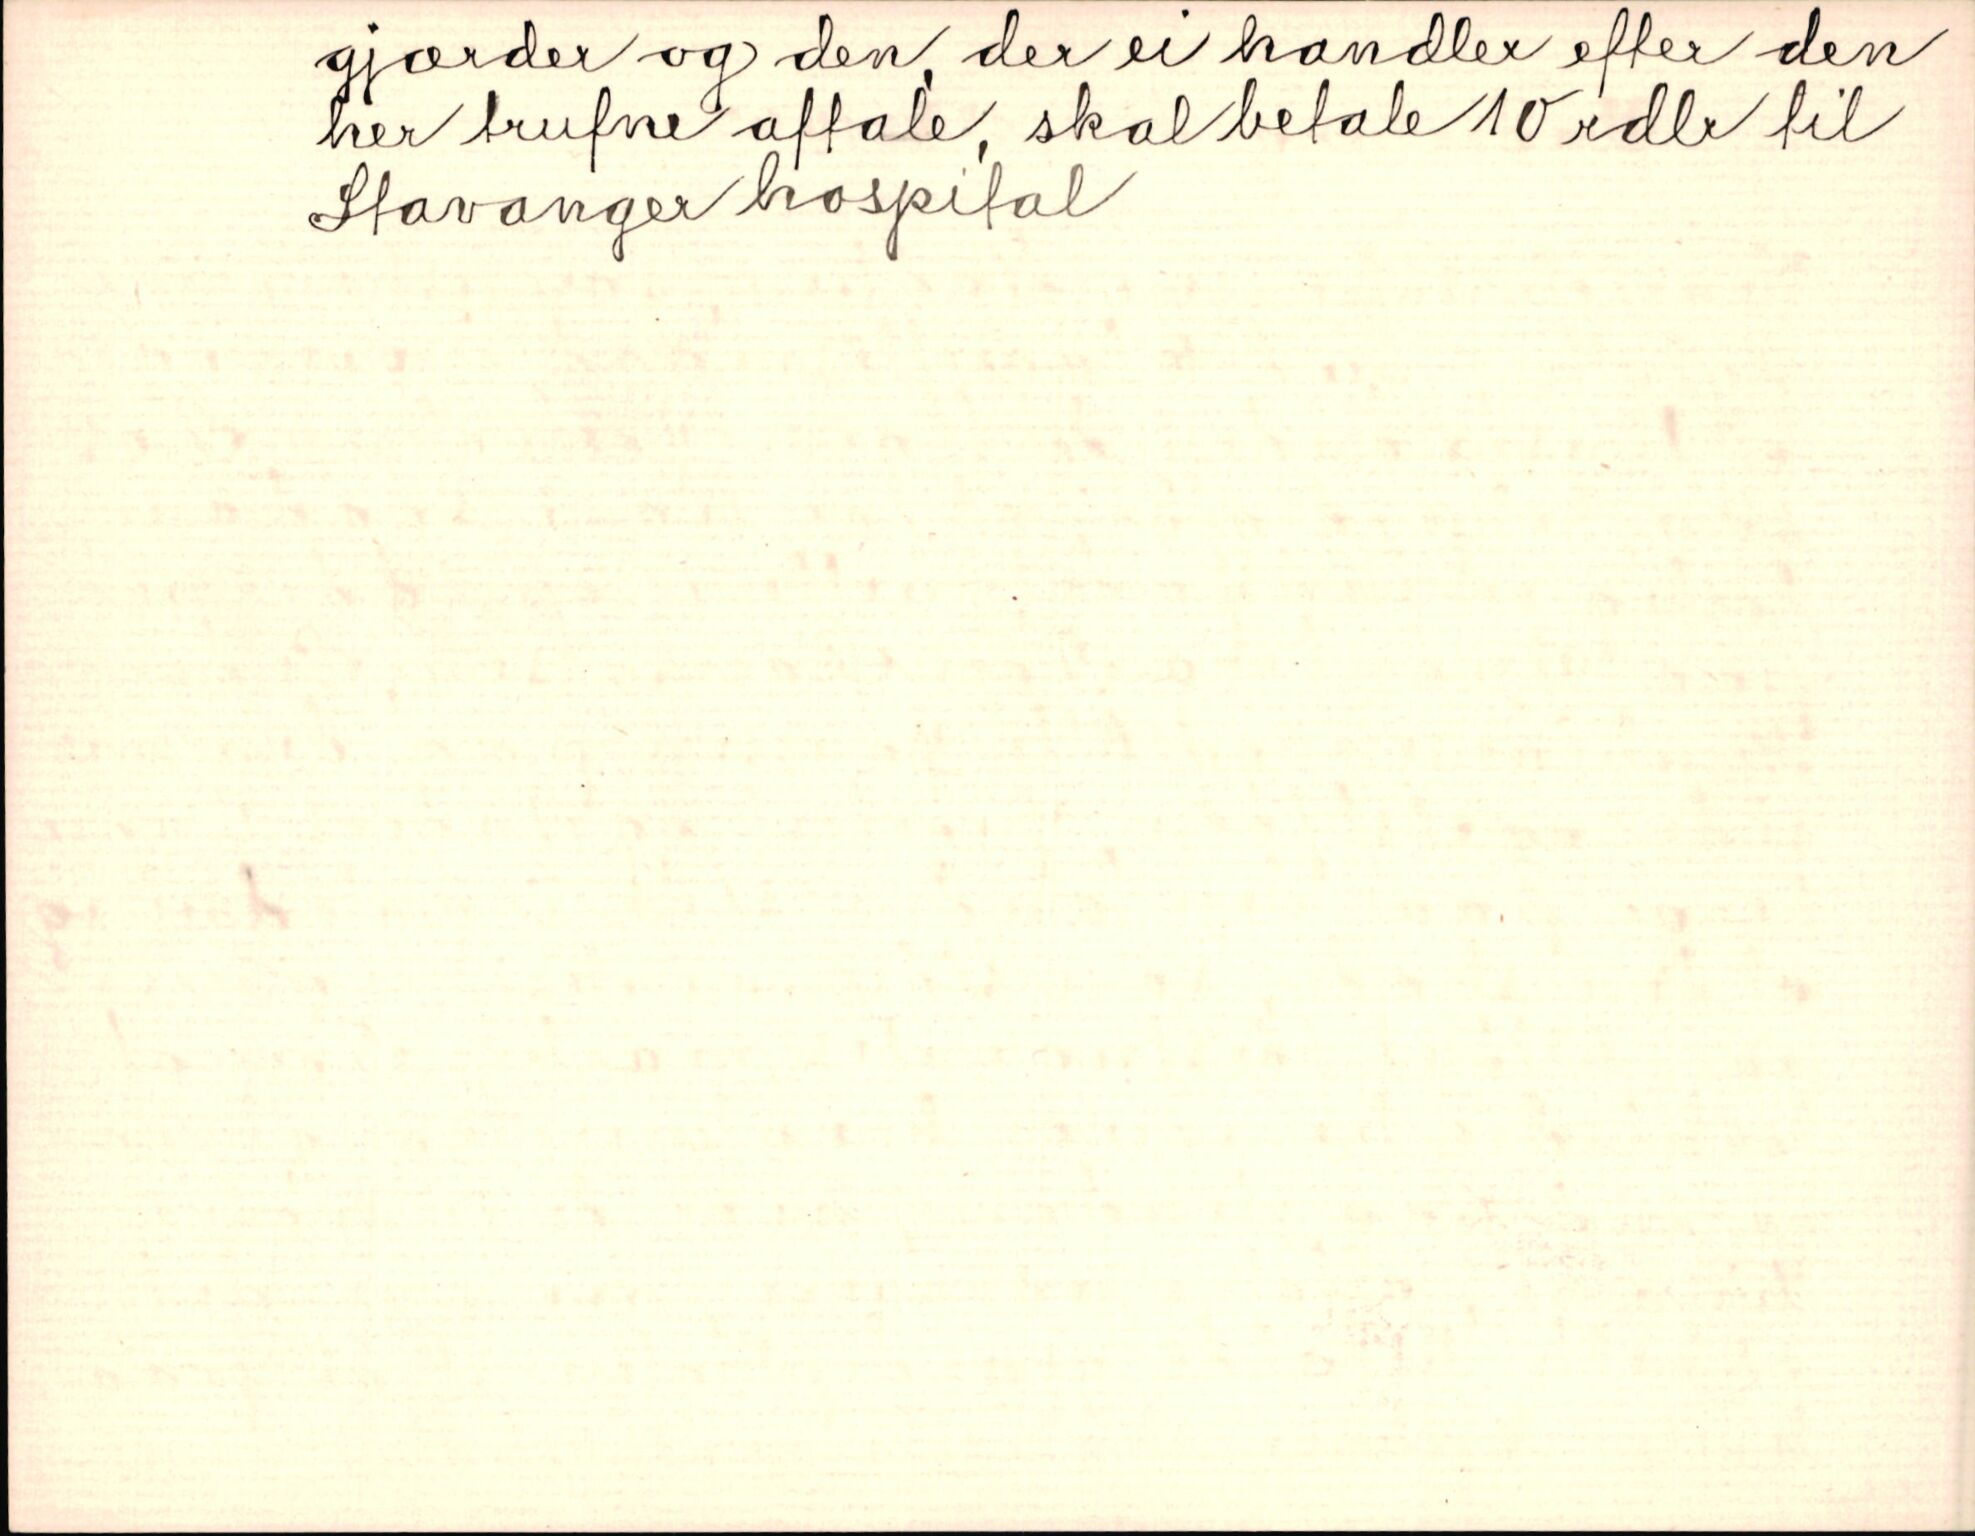 gjærder og den, der ei handler efter den
her trufne aftale, skal betale 10 rdlr til
Stavanger hospital